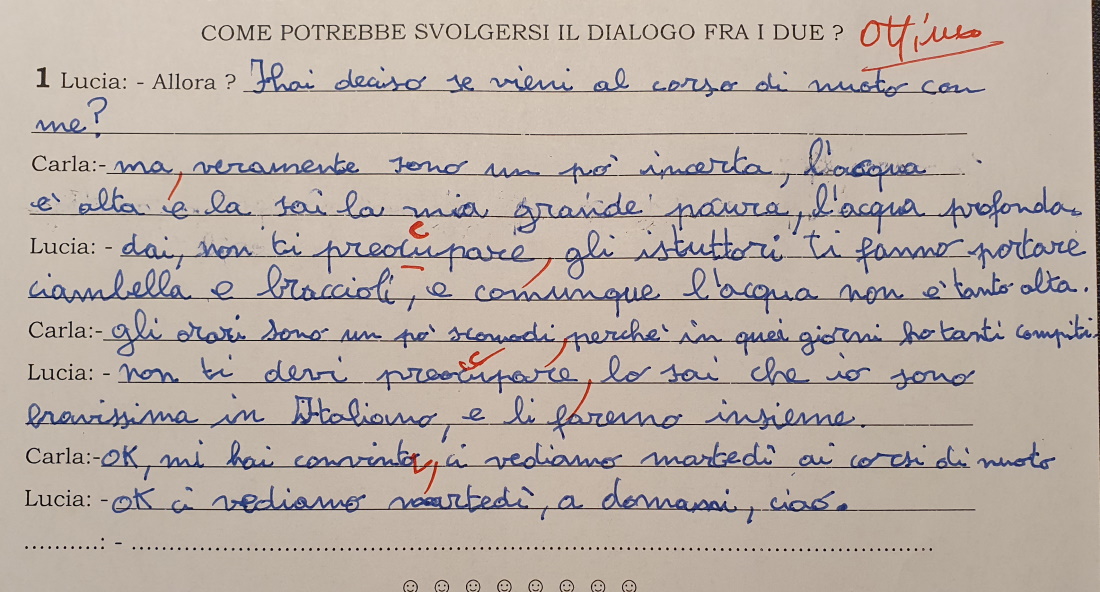 COME POTREBBE SVOLGERSI IL DIALOGO FRA I DUE ? Ottimo
1 Lucia: - Allora ? Hai deciso se vieni al corso di nuoto con
me?
Carla:- ma, veramente sono un po' incerta, l'acqua
è alta e la sai la mia grande paura, l'acqua profonda.
Lucia: - dai, non ti preoccupare, gli istuttori ti fanno portare
ciambella e braccioli, e comunque l'acqua non è tanto alta.
Carla:- gli orari sono un po' scomodi, perchè in quei giorni ho tanti compiti.
Lucia: - non ti devi preoccupare, lo sai che io sono
bravissima in Italiano, e li faremo insieme.
Carla:- OK, mi hai convinta, ci vediamo martedì ai corsi di nuoto
Lucia: - OK ci vediamo martedì, a domani, ciao.
..........: - ....................................................................................................